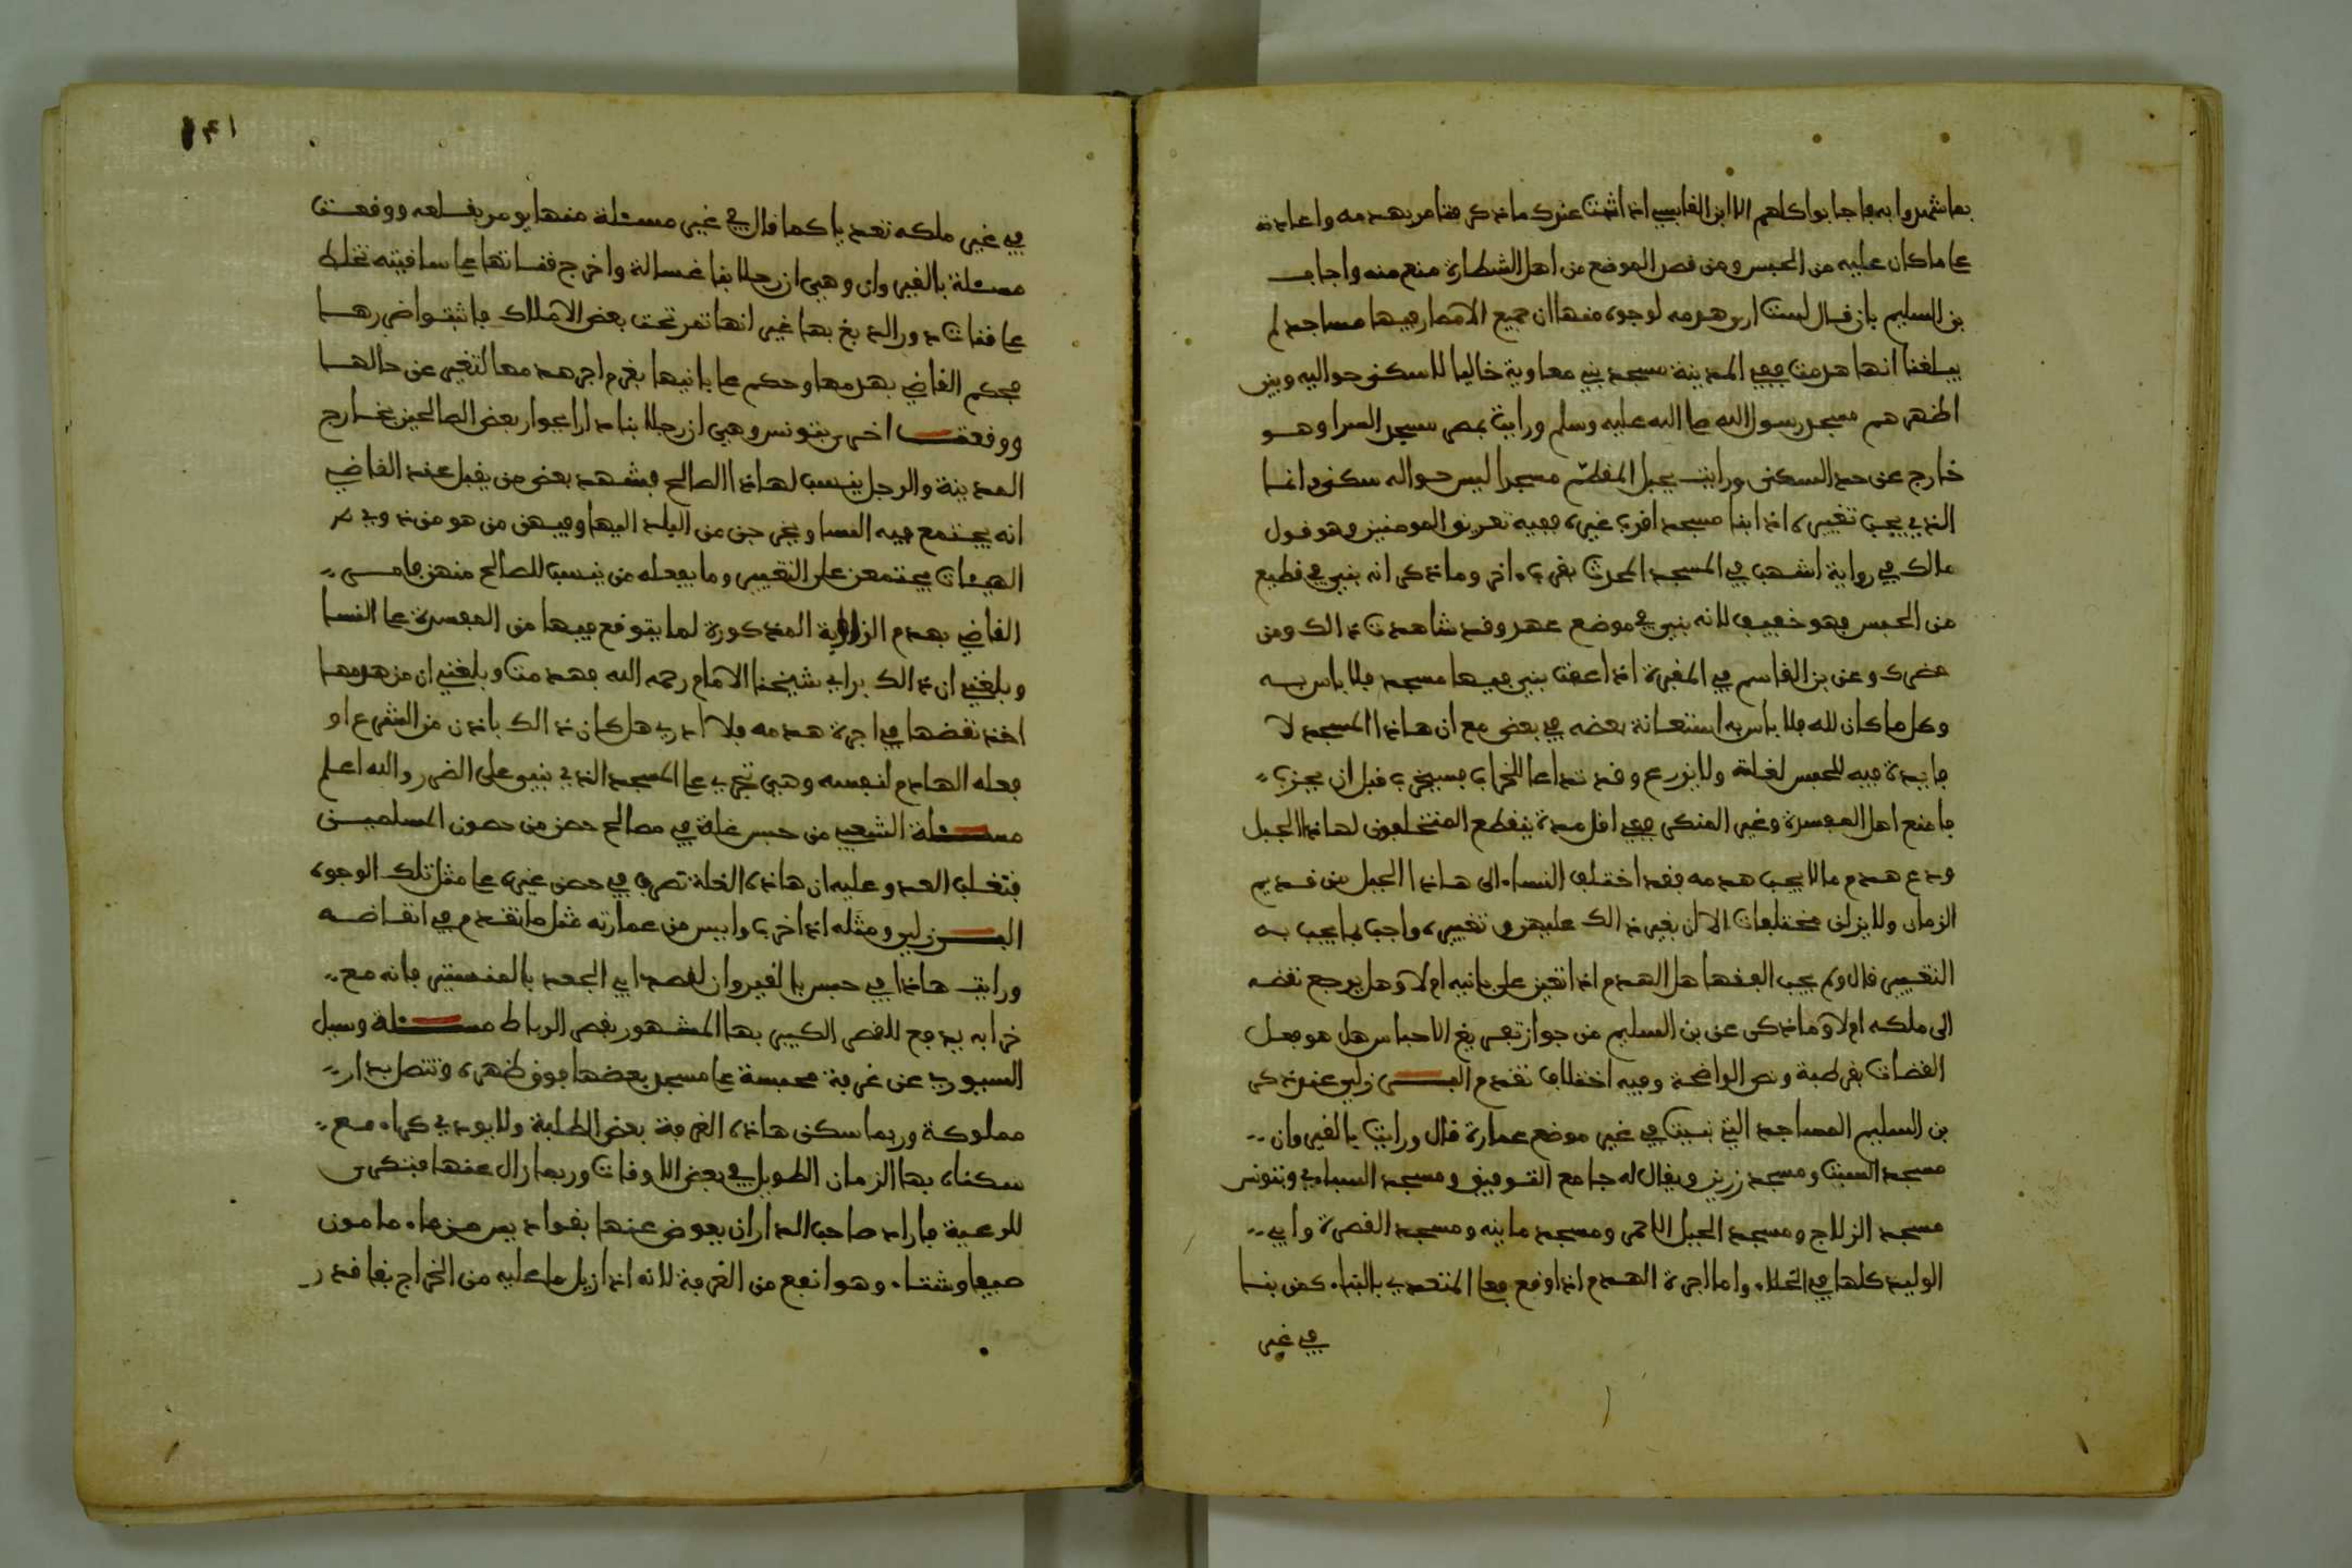 بما شهدوا به فاجابوا كلهم الا ابن القابسي اذا اثبت عندك ما ذكر فتامر بهدمه واعادته
على ما كان عليه من الحبس ومن قصر الموضع من اهل الشطارة منع منه واجاب
بن السليم بان قال لست ارى هدمه لوجوه منها ان جميع الامصار فيها مساجد لم
يبلغنا انها هدمت ففي المدينة مسجد بني معاوية خاليا لا سكنى حواليه وبين
اظهرهم مسجد رسول الله صلى الله عليه وسلم ورايت بمصر مسجد السرا وهو
خارج عن حد السكنى ورايت بجبل المقطم مسجدا ليس حواله سكنى وانما
الذي يجب تغييره اذا ابنا مسجد اقرب غيره ففيه تفريق المومنين وهو قول
مالك في رواية اشهب في المسجد المحدث بقرب ءاخر وما ذكر انه بني في قطيع
من الحبس فهو خفيف لانه بني في موضع عهد وقد شاهدت ذالك ومن
حضرك وعن بن القاسم في المقبرة اذا عفت بني فيها مسجد فلا باس به
وكل ما كان لله فلا باس به استعانة بعضه في بعض مع ان هاذا المسجد لا
فايدة فيه للحبس لغلة ولا زرع وقد تداعا للخراب فسيخرب قبل ان يجزي
فامنع اهل المفسدة وغير المنكر ففي اقل مدة ينقطع المتخلفون لهاذا الجبل
ودع هدم ما لا يجب هدمه فقد اختلف النساء الى هاذا الجبل من قديم
الزمان ولا يزلن مختلفات الا ان بغير ذالك عليهن وتغييره واجب بما يجب به
التغيير قال ولم يجب الفقها هل الهدم اذا تعين على بانيه ام لا وهل يرجع نقضه
الى ملكه ام لا وما ذكر عن بن السليم من جواز تفريغ الاحباس هل هو فعل
القضات بقرطبة ونص الواضحة وفيه اختلاف تقدم البرزلي عنون ذكر
بن السليم المساجد التي بنيت في غير موضع عمارة قال ورايت بالقيروان
مسجد السبت ومسجد زريز ويقال له جامع التوفيق ومسجد السباي وبتونس
مسجد الزلاج ومسجد الجبل الاحمر ومسجد ماينه ومسجد القصرة وابي
الوليد كلها في الخلاء واما اجرة الهدم اذا وقع فعلى المتعدي بالبناء كمن بنا
في غير
١٤١
في غير ملكه تعديا كما قال في غير مسئلة منها يومر بقلعه ووقعت
مسئلة بالقيروان وهي ان رجلا بنا غسالة واخرج قناتها على ساقيته تختلط
على قنات دور الدبغ بها غير انها تمر تحت بعض الاملاك فاثبتوا ضررها
فحكم القاضي بهدمها وحكم على بانيها بغرم اجر هدمها لتغير عن حالها
ووقعت اخرى بتونس وهي ان رجلا بنا دارا بجوار بعض الصالحين بخارج
المدينة والرجل ينسب لهاذا الصالح فشهد بعض من يقبل عند القاضي
انه يجتمع فيه النسا ويخرجن من البلد اليها وفيهن من هو من ذوي
الهيئات يجتمعن على التغيير وما يفعله من ينسب للصالح منهن فامر
القاضي بهدم الزاوية المذكورة لما يتوقع فيها من المفسدة على النسا
وبلغني ان ذالك براي شيخنا الامام رحمه الله فهدمت وبلغني ان من هدمها
اخذ نقضها في اجرة هدمه فلا ادري هل كان ذالك باذن من الشرع او
فعله الهادم لنفسه وهي تجري على المسجد الذي بني على الضرر والله اعلم
مسئلة الشعبي من حبس غلة في مصالح حصن من حصون المسلمين
فتغلب العدو عليه ان هاذه الغلة تصرف في حصن غيره على مثل تلك الوجوه
البرزلي ومثله اذا خرب وايس من عمارته مثل ما تقدم في انقاضه
ورايت هاذا في حبس بالقيروان لقصد ابي الجعد بالمنستير فانه مع
خرابه يدفع للقصر الكبير بها المشهور بقصر الرباط مسئلة وسيل
السيوري عن غرفة محبسة على مسجد بعضها فوق ظهره وتتصل بدار
مملوكة وربما سكن هاذه الغرفة بعض الطلبة ولا يودي كراء مع
سكناه بها الزمان الطويل في بعض الاوقات وربما زال عنها فتكرى
للرعية فاراد صاحب الدار ان يعوض عنها بفواد يسر من ماء مامون
صيفا وشتاء وهو انفع من الغرفة لانه اذا زيل ما عليه من الخراج بقا قدر